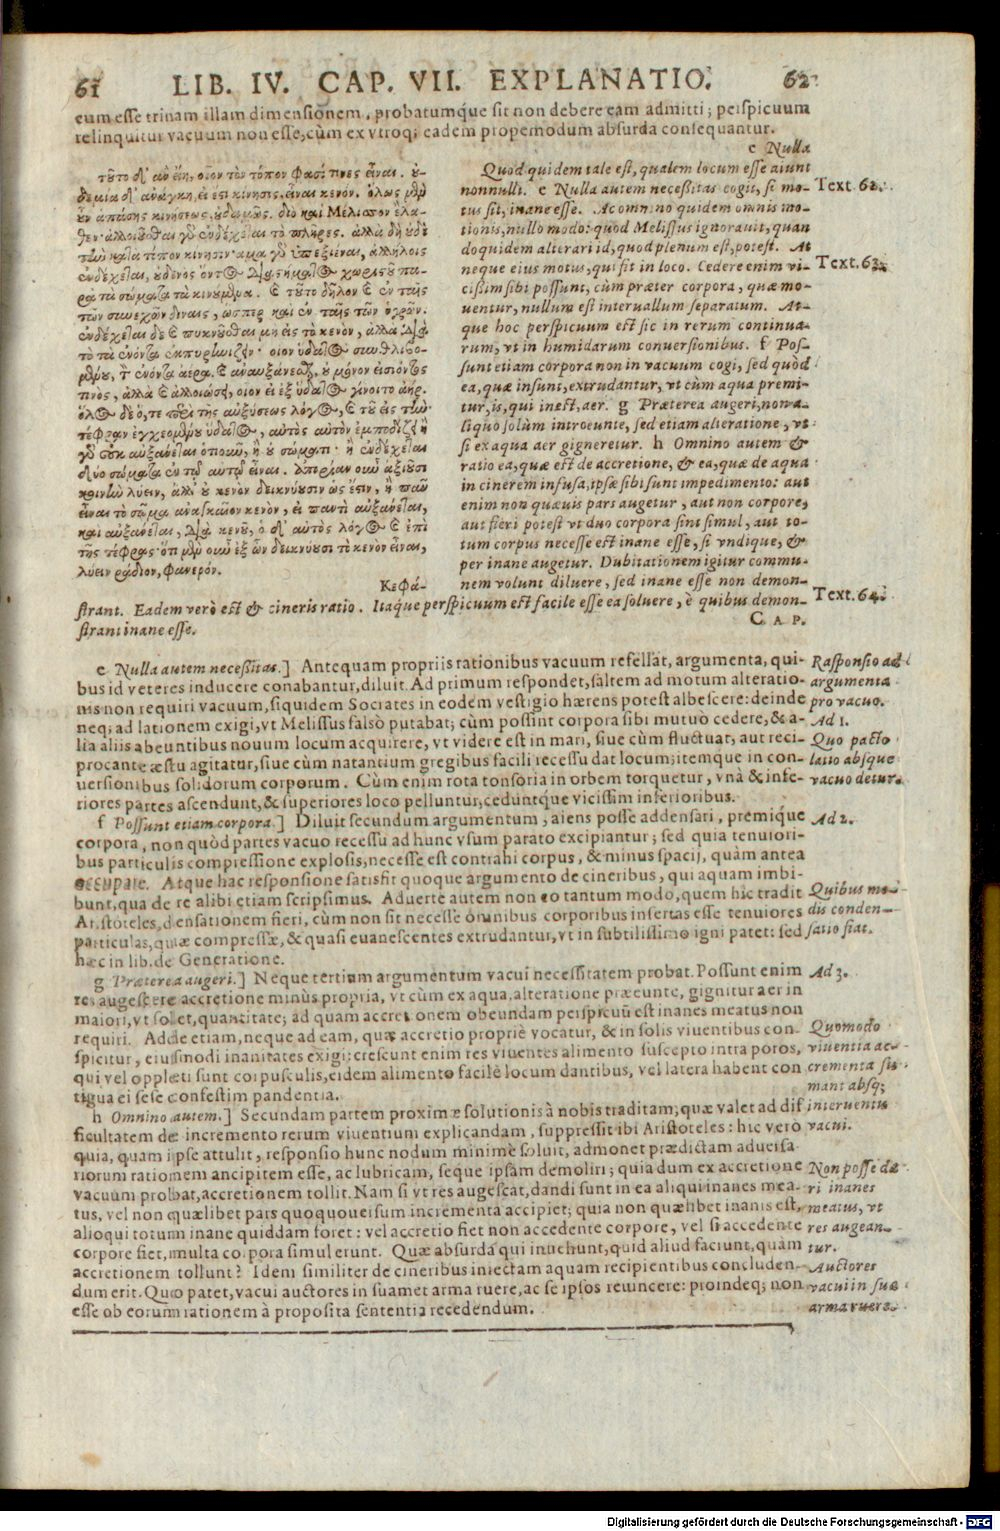 61 LIB. IV. CAP. VII. EXPLANATIO. 62
eum esse trinam illam dimensionem, probatumque sit non debere eam admitti; perspicuum
relinquitur vacuum non esse, cùm ex vtroq; eadem propemodum absurda consequantur.
e Nulla
τοῦτο δ' ἂν εἴη, οἷον τὸν τόπον φασί τινες εἶναι. οὐ-
δεμία δ' ἀνάγκη, εἰ ἔστι κίνησις, εἶναι κενόν. ὅλως μὲν
οὖν ἁπάσης κινήσεως, οὐδαμῶς. διὸ καὶ Μέλισσον ἔλα-
θεν· ἀλλοιοῦσθαι γὰρ ἐνδέχεται τὸ πλῆρες. ἀλλὰ δὴ οὐδὲ
τὴν κατὰ τόπον κίνησιν· ἅμα γὰρ ὑπεξιέναι, ἀλλήλοις
ἐνδέχεται, οὐδενὸς ὄντος διαστήματος χωριστοῦ πα-
ρὰ τὰ σώματα τὰ κινούμενα. καὶ τοῦτο δῆλον καὶ ἐν ταῖς
τῶν συνεχῶν δίναις, ὥσπερ καὶ ἐν ταῖς τῶν ὑγρῶν.
ἐνδέχεται δὲ καὶ πυκνοῦσθαι μὴ εἰς τὸ κενὸν, ἀλλὰ διὰ
τὸ τὰ ἐνόντα ἐκπυρηνίζειν· οἷον ὕδατος συνθλιβο-
μένου, τὸν ἐνόντα ἀέρα. καὶ αὐξάνεσθαι, οὐ μόνον εἰσιόντος
τινὸς, ἀλλὰ καὶ ἀλλοιώσει, οἷον εἰ ἐξ ὕδατος γίνοιτο ἀήρ.
ὅλως δὲ ὅ, τε περὶ τῆς αὐξήσεως λόγος, καὶ τοῦ εἰς τὴν
τέφραν ἐγχεομένου ὕδατος, αὐτὸς αὑτὸν ἐμποδίζει· ἢ
γὰρ οὐκ αὐξάνεται ὁτιοῦν, ἢ οὐ σώματι· ἢ ἐνδέχεται
δύο σώματα ἐν τῷ αὐτῷ εἶναι. ἀπορίαν οὖν ἀξιοῦσι
κοινὴν λύειν, ἀλλ' οὐ κενὸν δεικνύουσιν ὡς ἔστιν, ἢ πᾶν
εἶναι τὸ σῶμα ἀναγκαῖον κενὸν, εἰ παντὶ αὐξάνεται,
καὶ αὐξάνεται, διὰ κενοῦ, ὁ δ' αὐτὸς λόγος καὶ ἐπὶ
τῆς τέφρας· ὅτι μὲν οὖν ἐξ ὧν δεικνύουσι τὸ κενὸν εἶναι,
λύειν ῥάδιον, φανερόν.
Κεφά-
Quod quidem tale est, qualem locum esse aiunt
nonnulli. e Nulla autem necessitas cogit, si mo- Text. 62.
tus sit, inane esse. Ac omnino quidem omnis mo-
tionis, nullo modo: quod Melissus ignorauit, quan
doquidem alterari id, quod plenum est, potest. At
neque eius motus, qui fit in loco. Cedere enim vi- Text. 63.
cissim sibi possunt, cùm præter corpora, quæ mo-
uentur, nullum est interuallum separatum. At-
que hoc perspicuum est sic in rerum continua-
rum, vt in humidarum conuersionibus. f Pos-
sunt etiam corpora non in vacuum cogi, sed quòd
ea, quæ insunt, extrudantur, vt cùm aqua premi-
tur, is, qui inest, aer. g Præterea augeri, non a-
liquo solùm introeunte, sed etiam alteratione, vt
si ex aqua aer gigneretur. h Omnino autem &
ratio ea, quæ est de accretione, & ea, quæ de aqua
in cinerem infusa, ipsæ sibi sunt impedimento: aut
enim non quæuis pars augetur, aut non corpore,
aut fieri potest vt duo corpora sint simul, aut to-
tum corpus necesse est inane esse, si vndique, &
per inane augetur. Dubitationem igitur commu-
nem volunt diluere, sed inane esse non demon-
strant. Eadem verò est & cineris ratio. Itaque perspicuum est facile esse ea soluere, è quibus demon- Text. 64.
strant inane esse.
CAP.
e Nulla autem necessitas.] Antequam propriis rationibus vacuum refellat, argumenta, qui- Responsio ad
bus id veteres inducere conabantur, diluit. Ad primum respondet, saltem ad motum alteratio- argumenta
nis non requiri vacuum, siquidem Socrates in eodem vestigio hærens potest albescere: deinde pro vacuo.
neq; ad lationem exigi, vt Melissus falsò putabat; cùm possint corpora sibi mutuò cedere, & a- Ad 1.
lia aliis abeuntibus nouum locum acquirere, vt videre est in mari, siue cùm fluctuat, aut reci- Quo pacto
procante æstu agitatur, siue cùm natantium gregibus facili recessu dat locum; itemque in con- latio absque
uersionibus solidorum corporum. Cùm enim rota tonsoria in orbem torquetur, vnà & infe- vacuo detur.
riores partes ascendunt, & superiores loco pelluntur, ceduntque vicissim inferioribus.
f Possunt etiam corpora.] Diluit secundum argumentum, aiens posse addensari, premique Ad 2.
corpora, non quòd partes vacuo recessu ad hunc vsum parato excipiantur; sed quia tenuiori-
bus particulis compressione explosis, necesse est contrahi corpus, & minus spacij, quàm antea
occupare. Atque hac responsione satisfit quoque argumento de cineribus, qui aquam imbi-
bunt, qua de re alibi etiam scripsimus. Aduerte autem non eo tantum modo, quem hic tradit Quibus mo-
Aristoteles, densationem fieri, cùm non sit necesse omnibus corporibus insertas esse tenuiores dis conden-
particulas, quæ compressæ, & quasi euanescentes extrudantur, vt in subtilissimo igni patet: sed satio fiat.
hæc in lib. de Generatione.
g Præterea augeri.] Neque tertium argumentum vacui necessitatem probat. Possunt enim Ad 3.
res augescere accretione minùs propria, vt cùm ex aqua, alteratione præeunte, gignitur aer in
maiori, vt solet, quantitate; ad quam accretionem obeundam perspicuũ est inanes meatus non
requiri. Adde etiam, neque ad eam, quæ accretio propriè vocatur, & in solis viuentibus con Quomodo
spicitur, eiusmodi inanitates exigi: crescunt enim res viuentes alimento suscepto intra poros, viuentia ac-
qui vel oppleti sunt corpusculis, eidem alimento facilè locum dantibus, vel latera habent con crementa su-
tigua ei sese confestim pandentia. mant absq;
h Omnino autem.] Secundam partem proximæ solutionis à nobis traditam, quæ valet ad dif interuentu
ficultatem de incremento rerum viuentium explicandam, suppressit ibi Aristoteles: hic verò vacui.
quia, quam ipse attulit, responsio hunc nodum minimè soluit, admonet prædictam aduersa
riorum rationem ancipitem esse, ac lubricam, seque ipsam demoliri; quia dum ex accretione Non posse da
vacuum probat, accretionem tollit. Nam si vt res augescat, dandi sunt in ea aliqui inanes mea- ri inanes
tus, vel non quælibet pars quoquouersum incrementa accipiet; quia non quælibet inanis est, meatus, vt
alioqui totum inane quiddam foret: vel accretio fiet non accedente corpore, vel si accedente res augean-
corpore fiet, multa corpora simul erunt. Quæ absurda qui inuehunt, quid aliud faciunt, quàm tur.
accretionem tollunt? Idem similiter de cineribus iniectam aquam recipientibus concluden- Auctores
dum erit. Quo patet, vacui auctores in suamet arma ruere, ac se ipsos reuincere: proindeq; non vacui in sua
esse ob eorum rationem à proposita sententia recedendum. arma ruere.
Digitalisierung gefördert durch die Deutsche Forschungsgemeinschaft - DFG